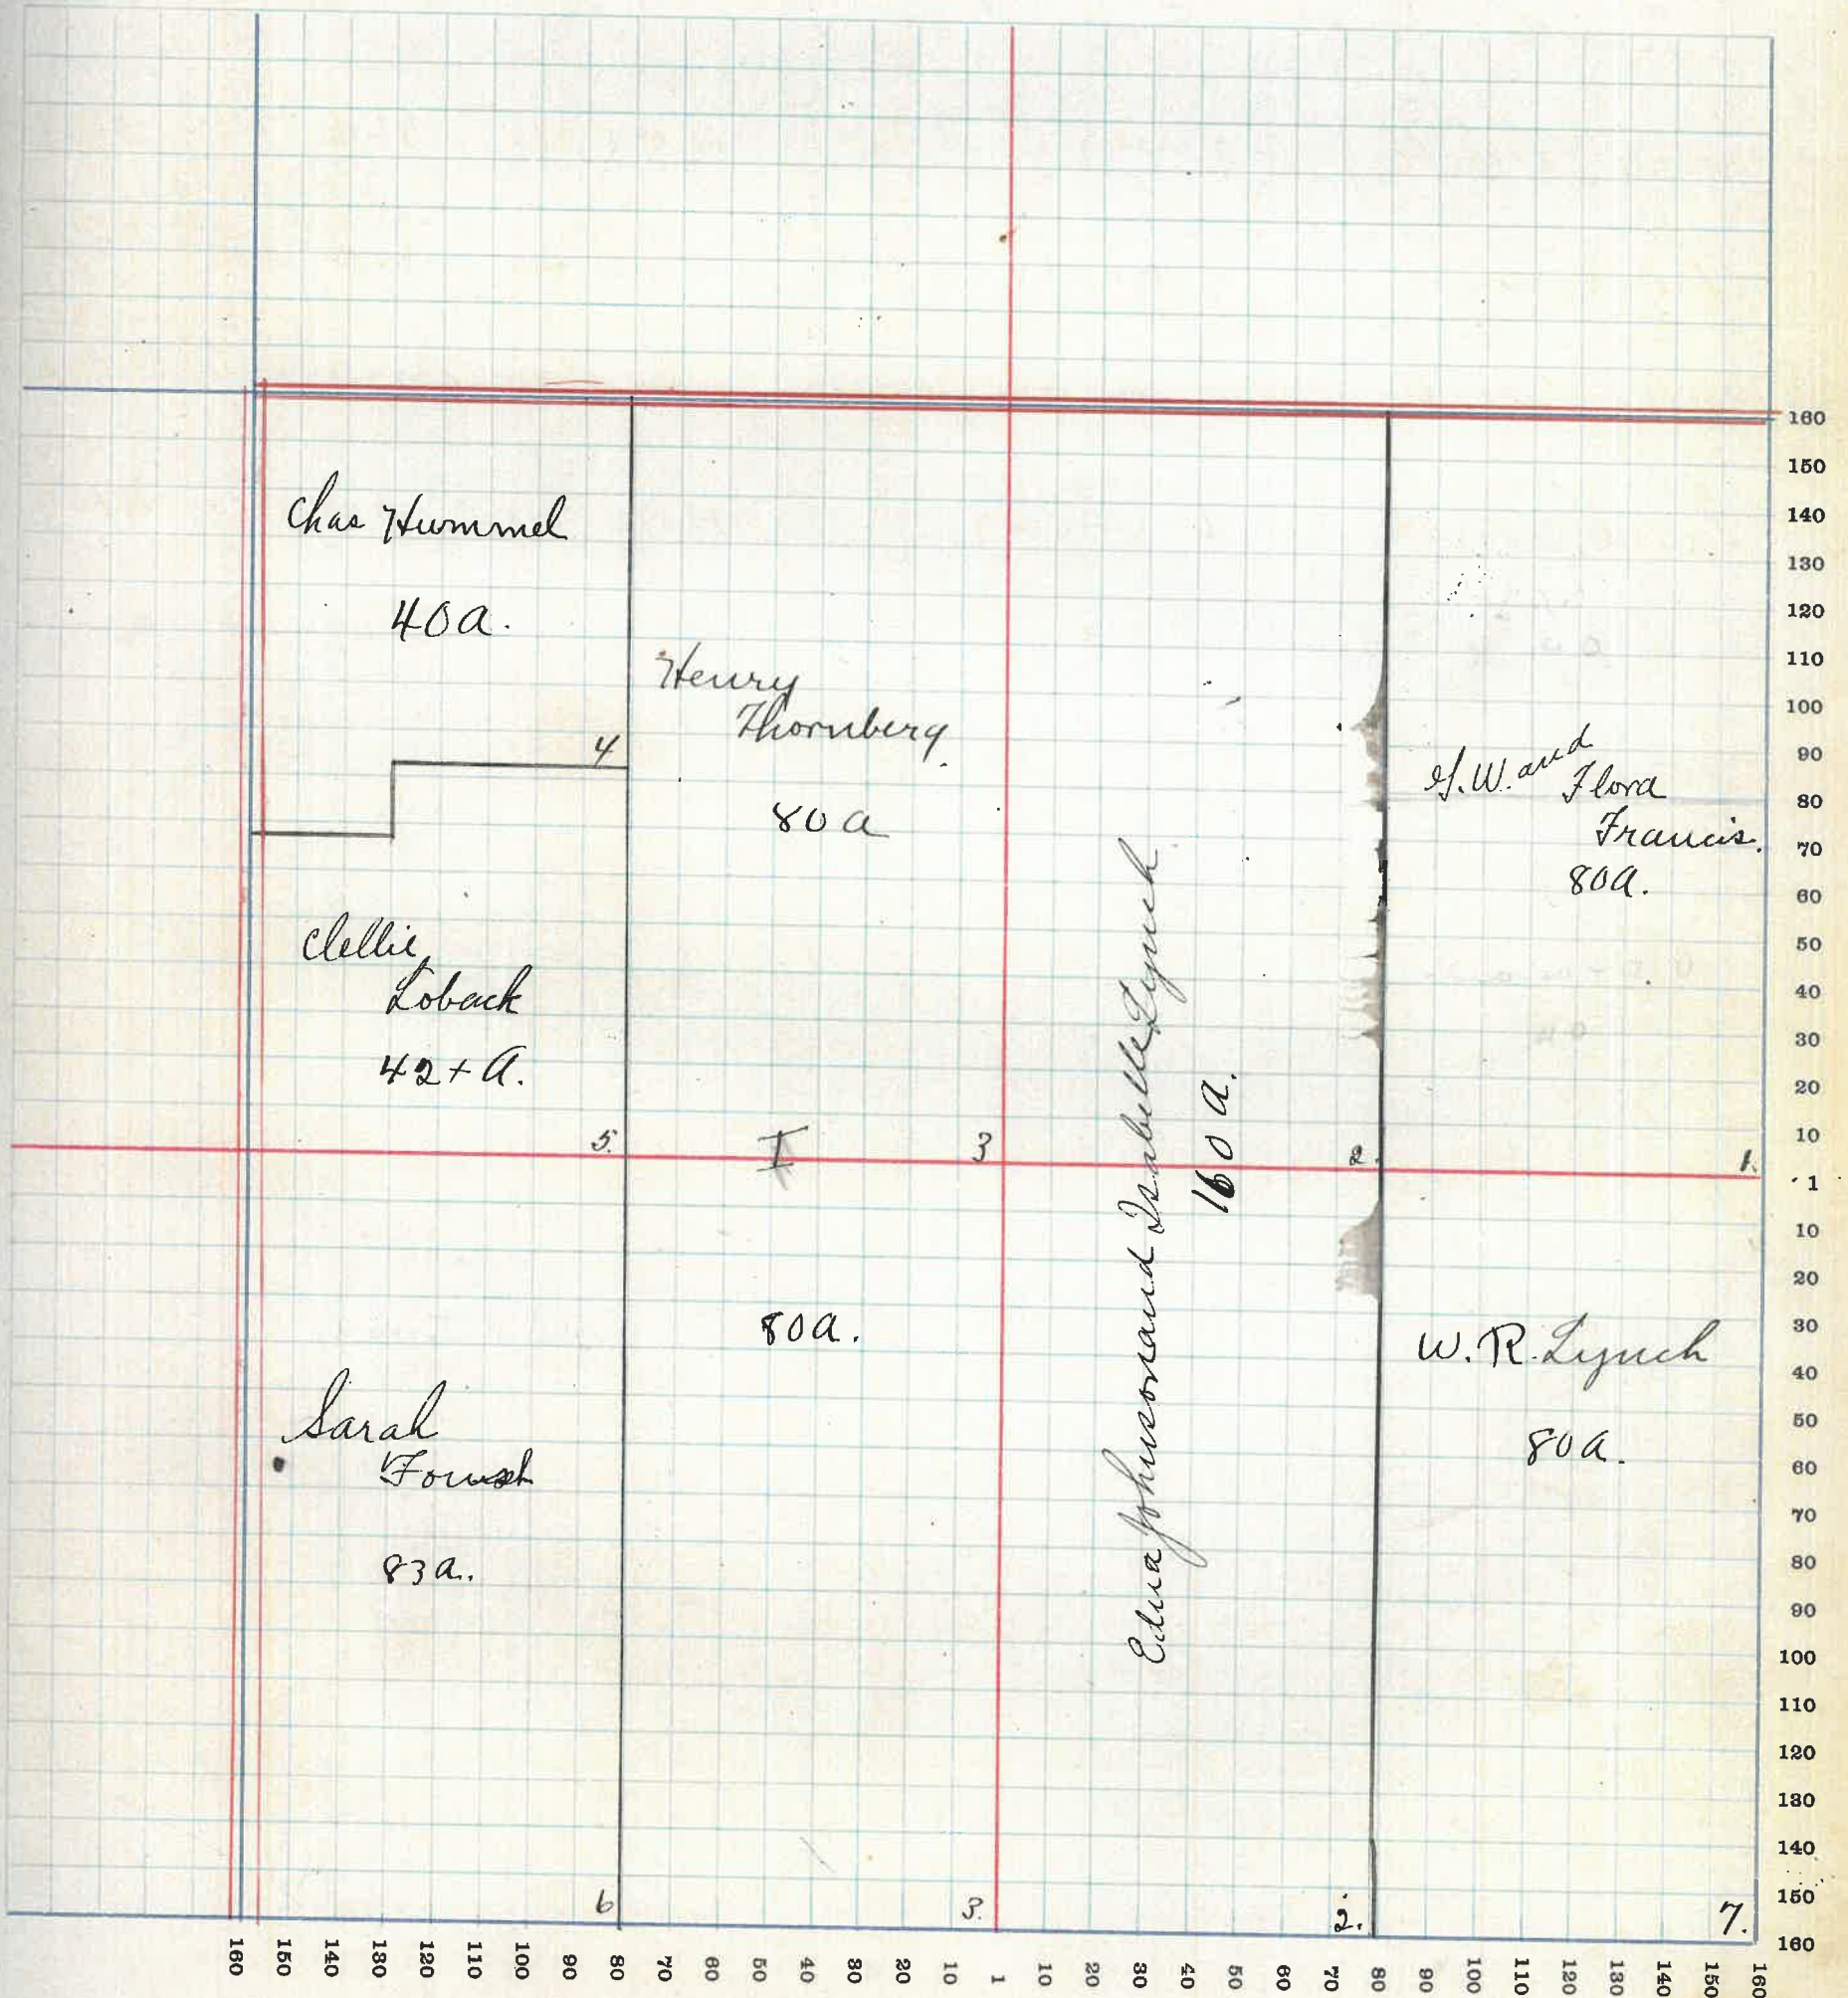 Chas Hummel
40a.
4
Henry
Thornberg.
80a
G.W. and
Flora
Francis.
80a.
Clellie
Loback
42+a.
5.
I
3
2.
1.
Edna Johnson and Isabelle Lynch
160 a.
80a.
W.R. Lynch
80a.
Sarah
83a.
6
3.
2.
7.
160
150
140
130
120
110
100
90
80
70
60
50
40
30
20
10
1
10
20
30
40
50
60
70
80
90
100
110
120
130
140
150
160
160 150 140 130 120 110 100 90 80 70 60 50 40 30 20 10 1 10 20 30 40 50 60 70 80 90 100 110 120 130 140 150 160